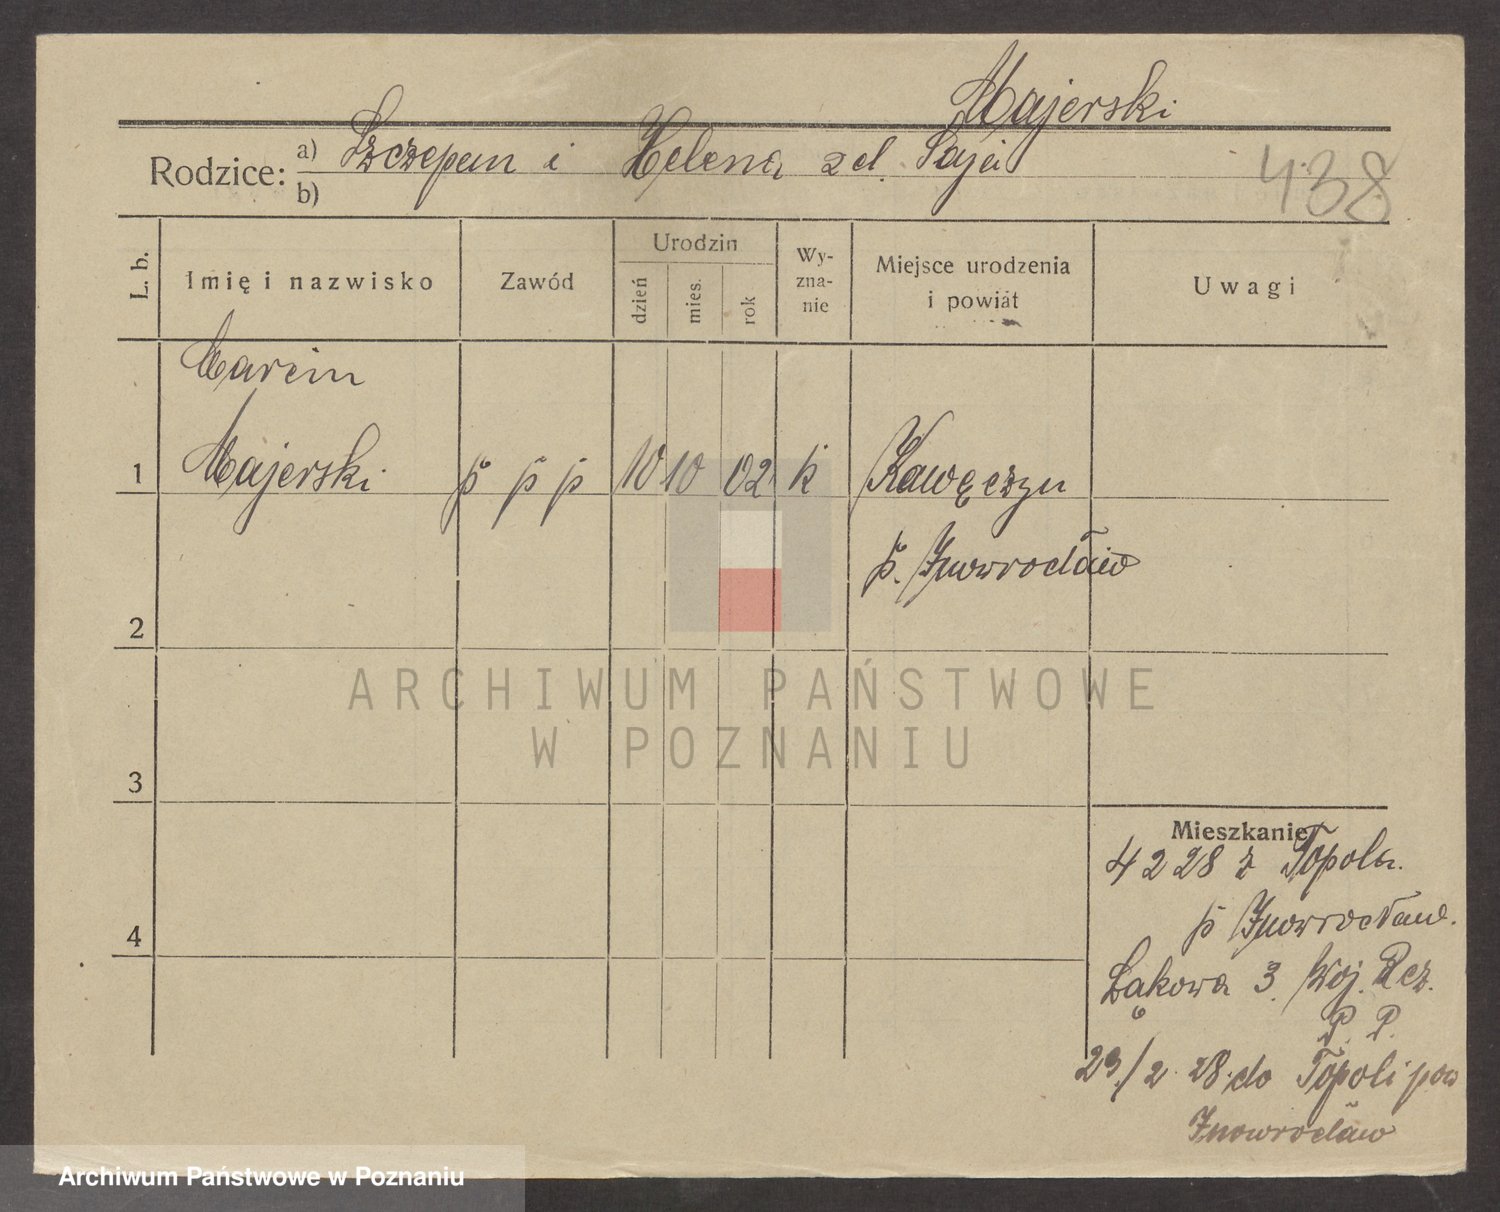 Majerski
Rodzice: a) Szczepan i Helena zd. Saja
b)
438
L. b.
Imię i nazwisko
Zawód
Urodzin
dzień
mies.
rok
Wy-
zna-
nie
Miejsce urodzenia
i powiat
Uwagi
Marcin
1 Majerski p p p 10 10 02 k Kawęczyn
p. Inowrocław
2
3
4
Mieszkanie
4 2 28 z Topola
p Inowrocław.
Łąkowa 3. Woj.
P. P.
29/2 28 do Topoli pow
Inowrocław
ARCHIWUM PAŃSTWOWE
W POZNANIU
Archiwum Państwowe w Poznaniu